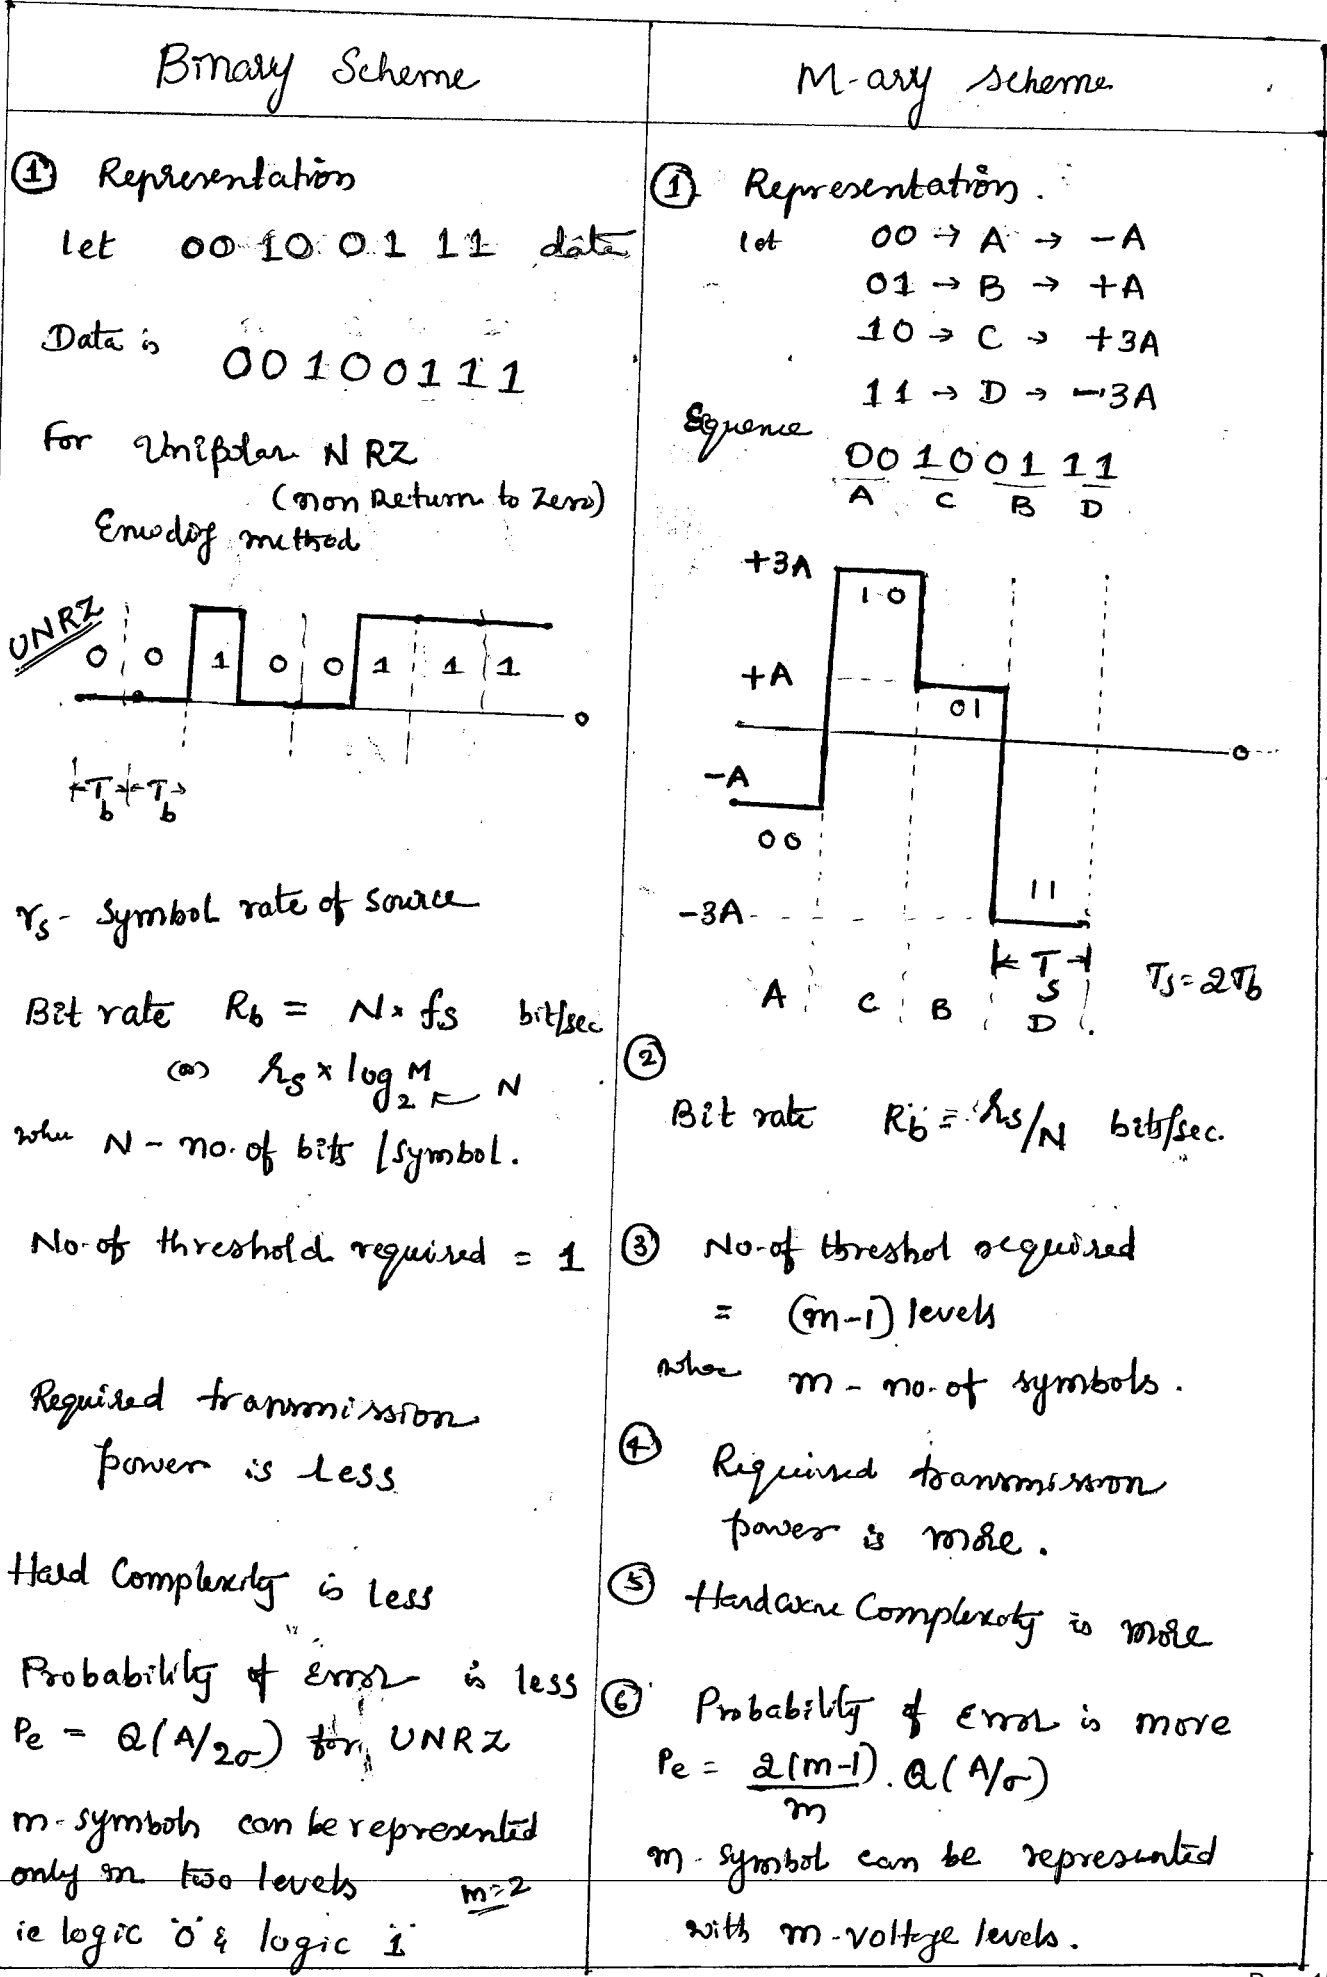 Binary Scheme
① Representation
let 00 10 01 11 data
Data is 00100111
For Unipolar NRZ
(non Return to Zero)
Encodig method
UNRZ
0 0 1 0 0 1 1 1
0
T_b T_b
r_s - Symbol rate of source
Bit rate R_b = N × f_s bit/sec
(or) r_s × log_2 M ← N
where N - no. of bits / symbol.
No-of threshold required = 1
Required transmission
power is less
Hard Complexity is less
Probability of error is less
Pe = Q(A/2σ) for UNRZ
m-symbols can be represented
only in two levels m=2
ie logic "0" & logic "1"
M-ary scheme
① Representation.
let 00 → A → -A
01 → B → +A
10 → C → +3A
11 → D → -3A
Sequence
00 10 01 11
A C B D
+3A
10
+A
01
0
-A
00
11
-3A
T_S T_s = 2T_b
A C B D
②
Bit rate R_b = r_s/N bits/sec.
③ No-of threshol required
= (m-1) levels
where m - no. of symbols.
④ Required transmission
power is more.
⑤ Hardware Complexity is more
⑥ Probability of error is more
Pe = 2(m-1)/m . Q(A/σ)
m-symbol can be represented
with m-voltage levels.